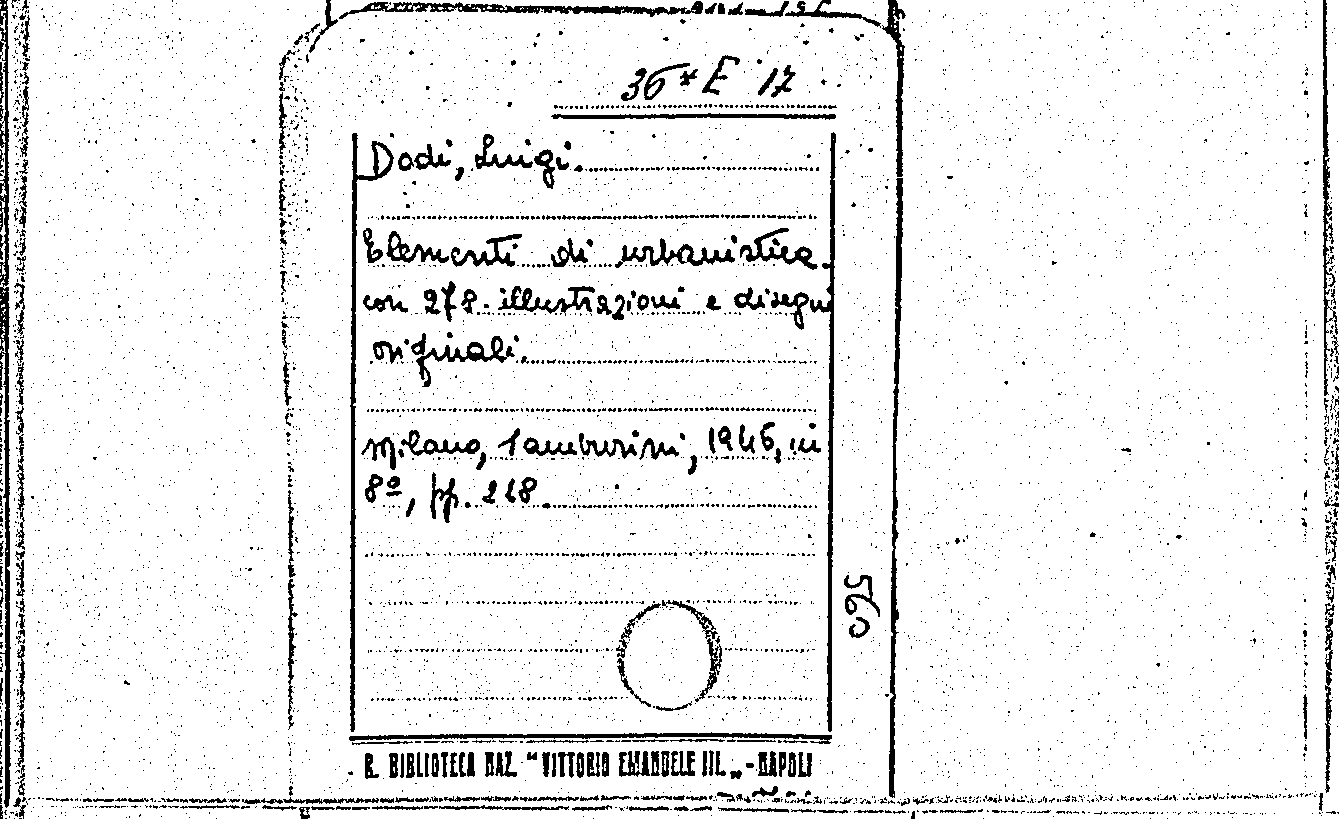 36 * E 17
Dodi, Luigi.
Elementi di urbanistica.
con 278 illustrazioni e disegni
originali.
Milano, Tamburini, 1946, in
8º, pp. 218.
560
R. BIBLIOTECA NAZ. "VITTORIO EMANUELE III. „ - NAPOLI